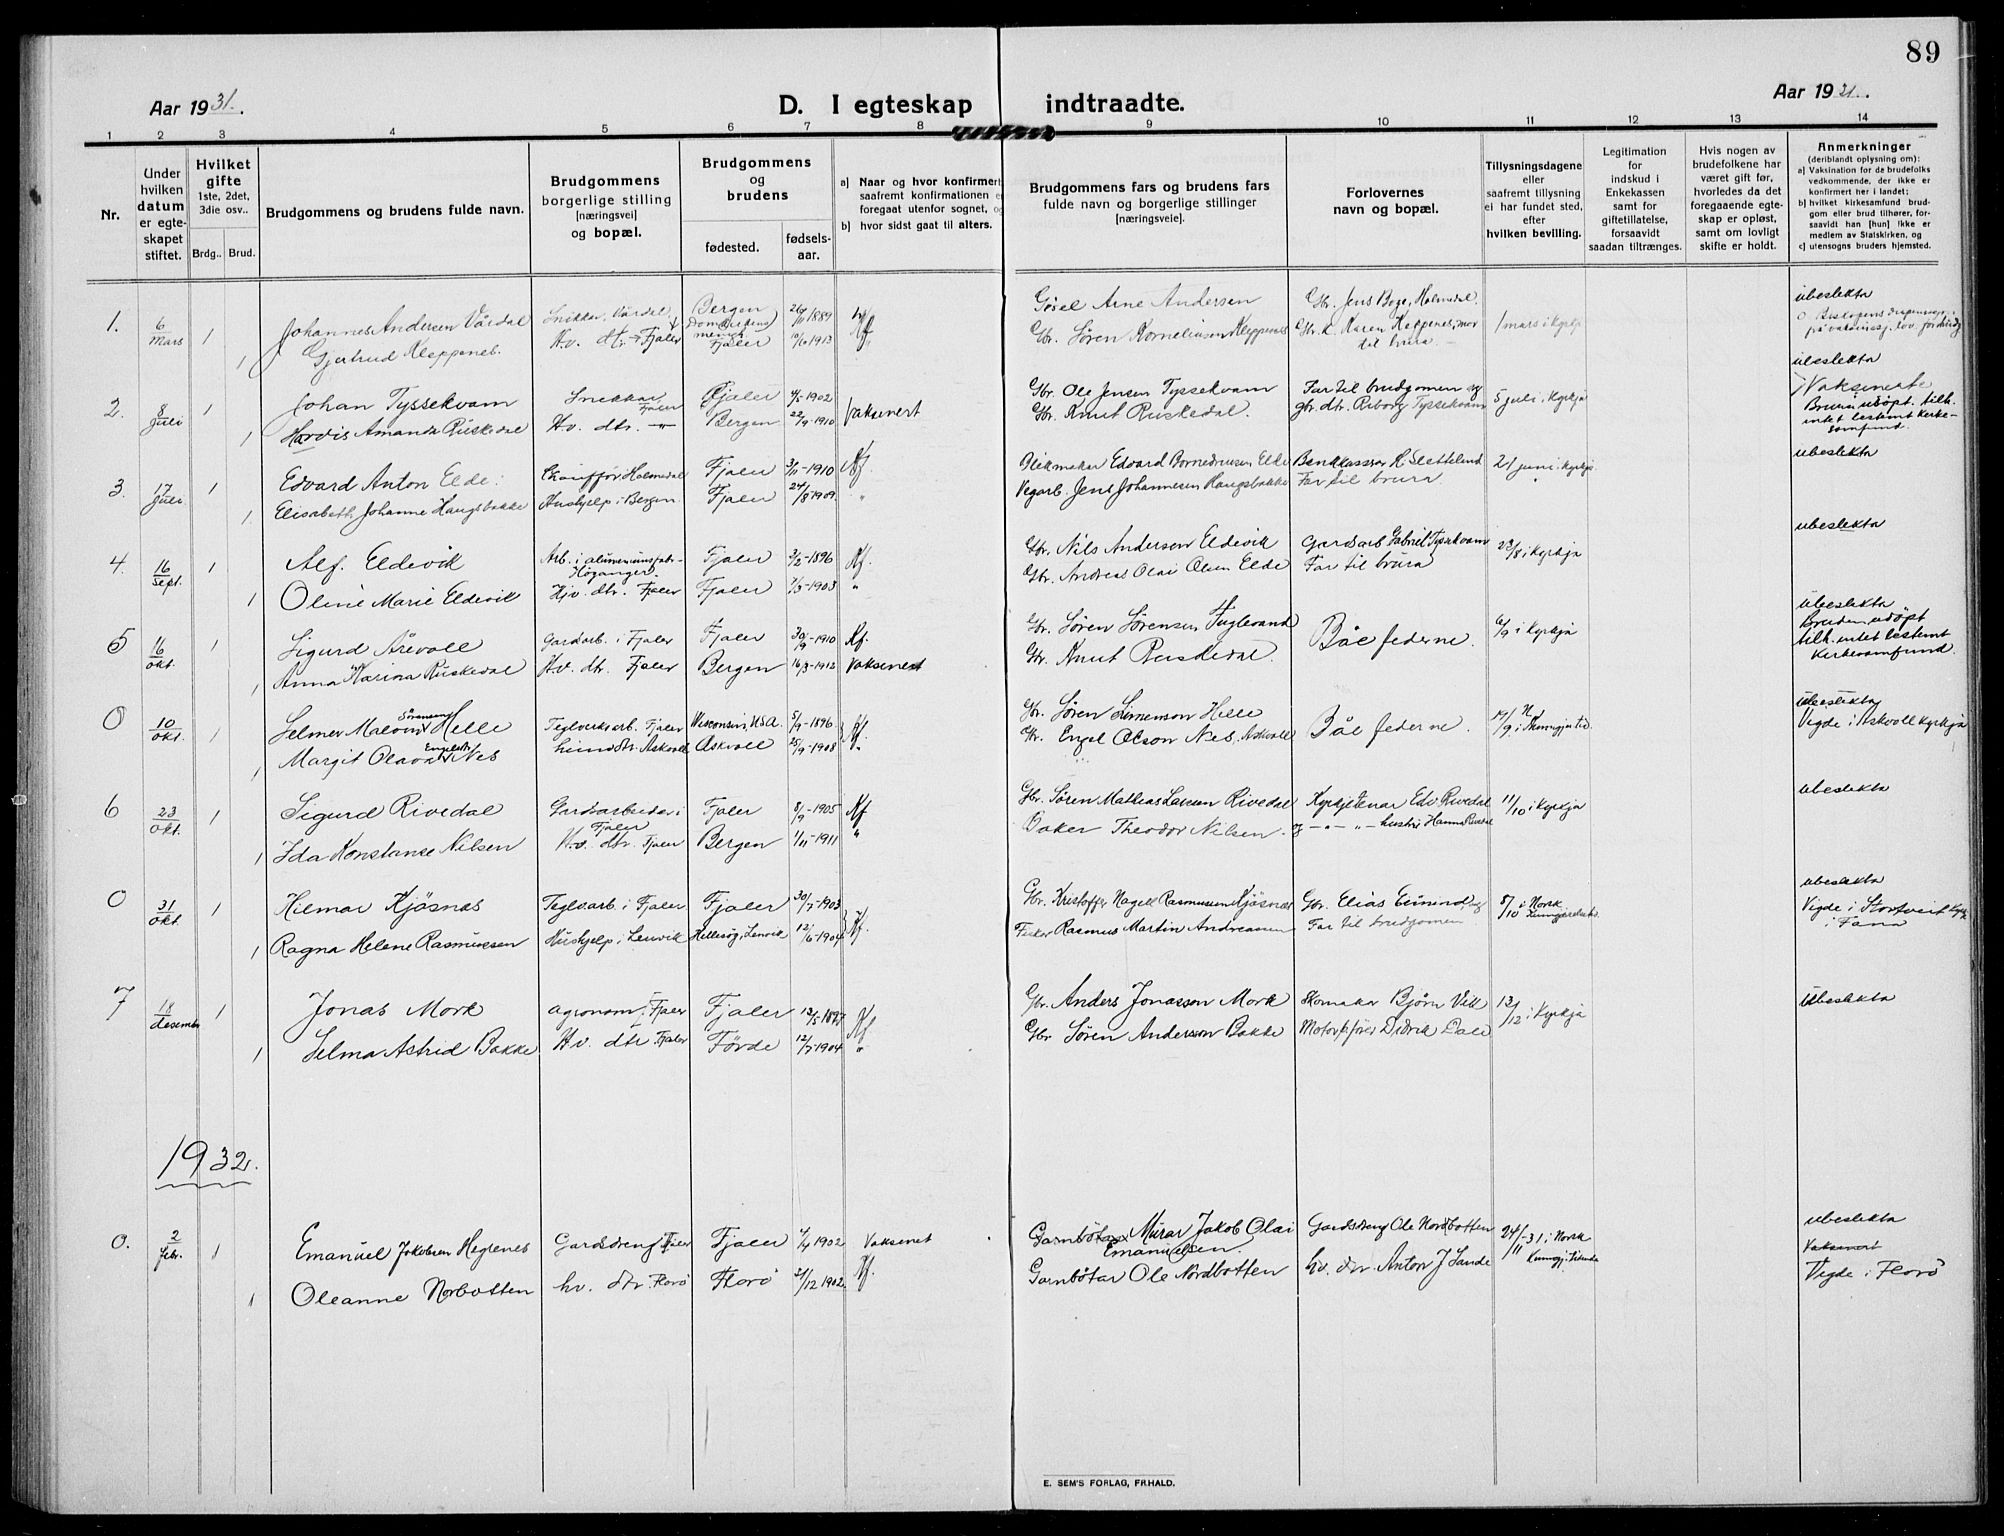 89
Aar 1931.
D. I egteskap indtraadte.
Aar 1931.
1 2 3 4 5 6 7 8 9 10 11 12 13 14
Nr.
Under hvilken datum er egteskapet stiftet.
Hvilket gifte 1ste, 2det, 3die osv..
Brdg.. Brud.
Brudgommens og brudens fulde navn.
Brudgommens borgerlige stilling [næringsvei] og bopæl.
Brudgommens og brudens
fødested.
fødsels-aar.
a) Naar og hvor konfirmert, saafremt konfirmationen er foregaat utenfor sognet, og
b) hvor sidst gaat til alters.
Brudgommens fars og brudens fars fulde navn og borgerlige stillinger [næringsveie].
Forlovernes navn og bopæl.
Tillysningsdagene eller saafremt tillysning ei har fundet sted, efter hvilken bevilling.
Legitimation for indskud i Enkekassen samt for giftetillatelse, forsaavidt saadan tiltrænges.
Hvis nogen av brudefolkene har været gift før, hvorledes da det foregaaende egteskap er opløst, samt om lovligt skifte er holdt.
Anmerkninger (deriblandt oplysning om):
a) Vaksination for de brudefolks vedkommende, der ikke er konfirmert her i landet;
b) hvilket kirkesamfund brudgom eller brud tilhører, forsaavidt han [hun] ikke er medlem av Statskirken, og
c) utensogns bruders hjemsted.
1. 6/Mars 1 Johannes Andersen Vårdal Snikkar, Vårdal Bergen 26/11 1889 Gbr. Jens Boge, Holmedal. ubeslekta
1 Gjertrud Kleppenes. Hv. dtr. Fjaler Fjaler 10/6 1913 Gbr. Søren Korneliussen Kleppenes Karen Kleppenes, mor til brura. 1 mars i kyrkja
2. 8/Juli 1 Johan Tyssekvam Snekkar Fjaler Fjaler 4/5-1902 Gbr. Ole Jensen Tyssekvam Far til brudgomen og 5 juli i kyrkja ubeslekta
1 Hardis Amanda Riskedal Hv. dtr. -"- Bergen 22/9-1910 Vaksenert Gbr. Knut Riskedal. gbr. dtr. Riborg Tyssekvam Vaksenerte Brura udöpt. tilh. intet bestemt kirkesamfund.
3. 17/Juli 1 Edvard Anton Elde Chauffør i Holmedal Fjaler 3/11-1910 Kf. Blikmakar Edvard Elde Bankkasserar H. Sletteland 21 juni i kyrkja ubeslekta
1 Elisabeth Johanne Haugsbakke Hushjelp i Bergen Fjaler 24/8 1909 " Vegarb. Jens Johannesen Haugsbakke Far til brura "
4. 16/Sept. 1 Alf. Eldevik Arb. i aluminiumsfabr. Høyanger Fjaler 3/2-1896 Kf. Gbr. Nils Andersen Eldevik Gardsarb Gabriel Tyssekvam 23/8 i kyrkja ubeslekta
1 Oline Marie Eldevik Hjv. dtr. Fjaler Fjaler 7/3-1903 " Gbr. Andreas Olai Olsen Elde Far til brura
5 16/okt. 1 Sigurd Årevoll Gardarb. i Fjaler Fjaler 30/9-1910 Kf. Gbr. Søren Sørensen Fuglevand Båe federne. 6/9 i kyrkja ubeslekta
1 Anna Karina Riskedal Hv. dtr. Fjaler Bergen 16/3-1912 Vaksenert Gbr. Knut Riskedal. Bruden udöpt tilh. intet bestemt kirkesamfund.
0 10/okt. 1 Selmer Malvin Sörensen Helle Teglverksarb. Fjaler Wisconsin, USA. 5/9-1896 Kf. Gbr. Søren Simenson Helle Båe federne. 19/9 i N. Kunngj.tid. ubeslekta
1 Margit Olava Engelsen Nes heimedtr. Askvoll Askvoll 25/9-1908 " Gbr. Engel Olson Nes, Askvoll Vigde i Askvoll kyrkja
6 23/okt. 1 Sigurd Rivedal Gardarbeidar i Fjaler Fjaler 8/9-1905 Kf. Gbr. Søren Mathias Larsen Rivedal Kyrkjetenar Edv Rivedal 11/10 i kyrkja ubeslekta
1 Ida Konstanse Nilsen H.v. dtr. Fjaler Bergen 1/11-1911 " Baker Theodor Nilsen. og -"- -"- hustru Hanna Rivedal
0 31/okt. 1 Hilmar Kjøsnes Teglvarb. i Fjaler Fjaler 30/7-1903 Kf. Gbr. Kristoffer Nagel Rasmussen Kjøsnes Gbr. Elias 5/10 i Norsk ubeslekta
1 Ragna Helene Rasmussen Hushjelp i Lenvik Hellesøy, Lenvik 12/6-1904 Fisker Rasmus Martin Andreassen Far til brudgomen Vigde i Storetveit kyrkje i Fana
7 18/desember 1 Jonas Mork agronom, i Fjaler Fjaler Kf Gbr. Anders Jonasson Mork Skomakar Bjørn Vik 13/12 i kyrkja Ubeslekta
1 Selma Astrid Bakke Hv. dtr i Fjaler Förde 12/7-1904 " Gbr Søren Anderson Bakke Motorfører Didrik Dale
1932.
0. 2/febr. 1 Emanuel Jakobsen Hegrenes Gardsdreng Fjaler Fjaler 7/4 1902 Vaksenet Garnbötar Murar Jakob Olai Emanuelsen Gardsdreng Ole Nordbotten 24/11-31 i Norsk ubeslekta
1 Oleanne Norbotten hv. dtr Florö Florö 21/12 1902 Kf. Garnbötar Ole Nordbotten hv. dtr. Anton J Sande Kunngj. Tidende Vaksenert Vigde i Florö
E. SEM'S FORLAG, FR.HALD.